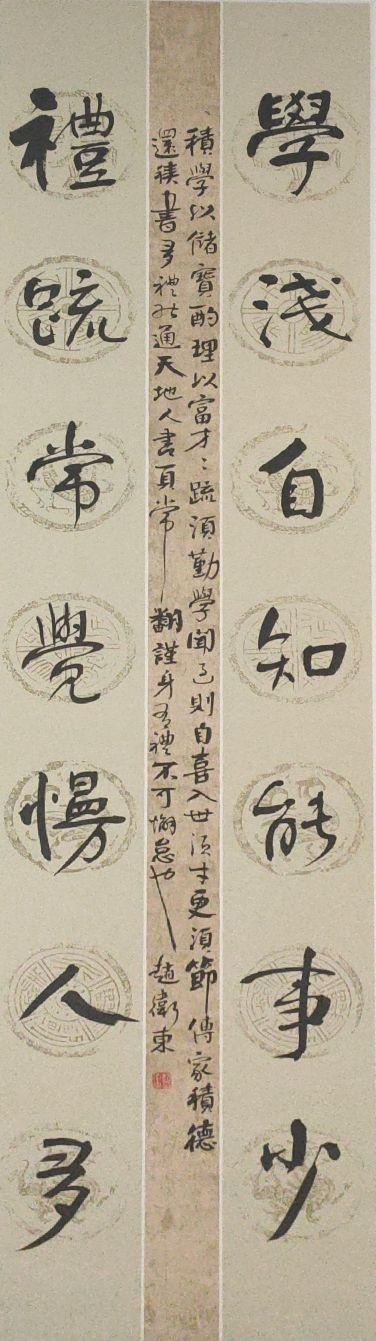 學淺自知能事少
積學以儲寶酌理以富才々疏須勤學聞過則自喜入世須才更須節傳家積德
還書多禮通天地人書頁常翻謹身有禮不可懈怠也 趙衛東
禮疏常覺慢人多